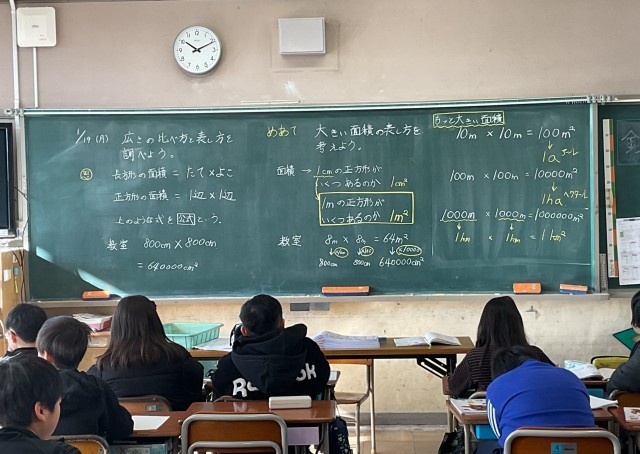 1/19 (月) 広さの比べ方と表し方を
調べよう。
長方形の面積 = たて×よこ
正方形の面積 = 1辺×1辺
上のような式を公式という。
教室 800cm×800cm
= 640000cm²
めあて 大きい面積の表し方を
考えよう。
面積 → 1cmの正方形が
いくつあるのか 1cm²
1mの正方形が
いくつあるのか 1m²
教室 8m × 8m = 64m²
×100 ×100 ×10000
800cm 800cm 640000cm²
もっと大きい面積
10m × 10m = 100m²
1a アール
100m × 100m = 10000m²
1ha ヘクタール
1000m × 1000m = 1000000m²
1km × 1km = 1km²